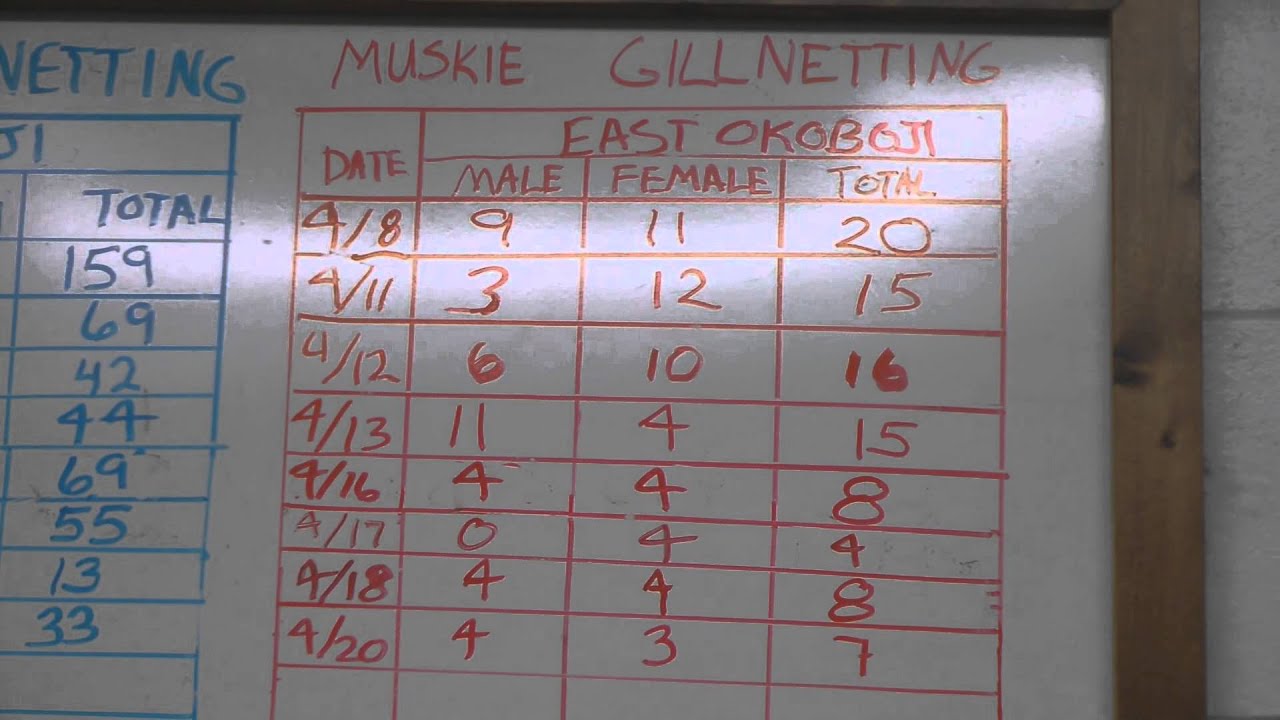 NETTING
JI
TOTAL
159
69
42
44
69
55
13
33
MUSKIE GILLNETTING
DATE EAST OKOBOJI
MALE FEMALE TOTAL
4/8 9 11 20
4/11 3 12 15
4/12 6 10 16
4/13 11 4 15
4/16 4 4 8
4/17 0 4 4
4/18 4 4 8
4/20 4 3 7